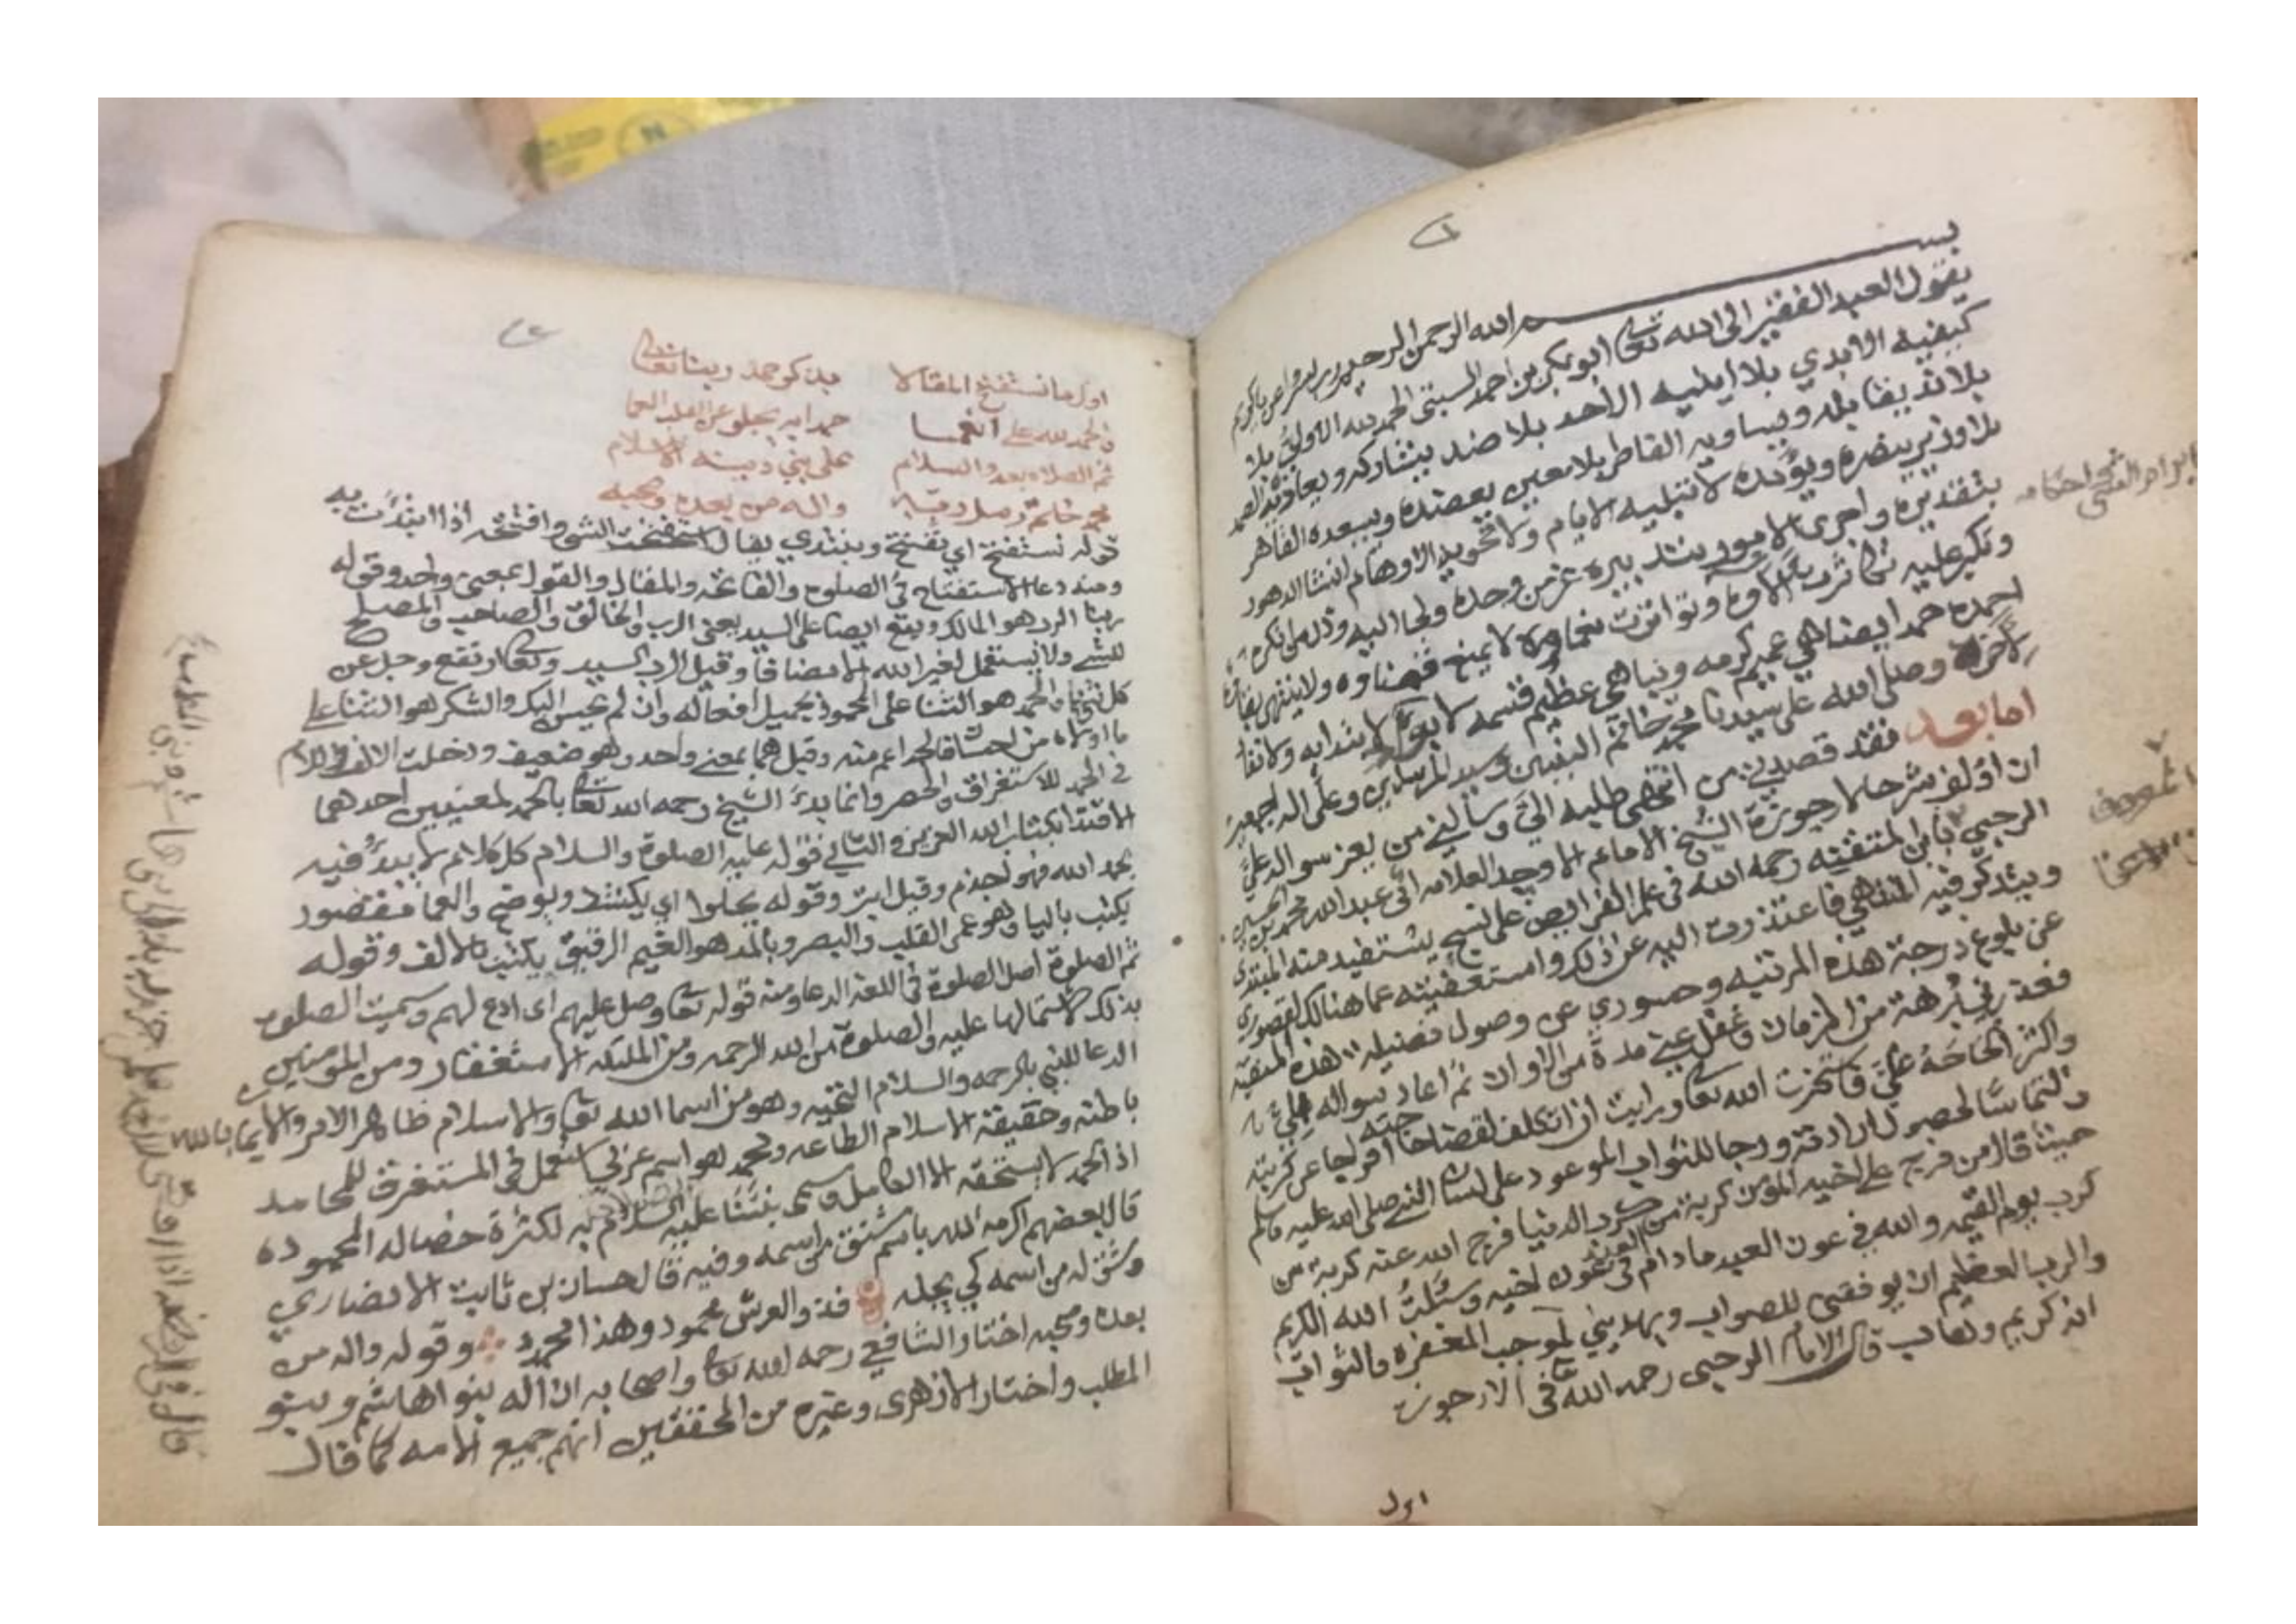 بسم الله الرحمن الرحيم رب يسر واعن يا كريم
يقول العبد الفقير الى الله تعالى ابو بكر بن احمد السبتي الحمد لله الاولي بلا
كيفيه الابدي بلا اينيه الاحد بلا ضد يشاركه ويعاونه الصمد
بلا ند يقابله ويساويه القاطر بلا معين يعضده ويسعده القاهر
بلا وزير ينصره ويؤيده لا تبليه الايام ولا تحويه الاوهام انشا الدهور
بتقديره واجرى الامور بتدبيره عز من وحده ولجا اليه وذل من انكره
وتكبر عليه
احمده حمدا يضاهي عميم كرمه ويباهي عظيم قسمه لا لابتدايه ولا
وصلى الله على سيدنا محمد خاتم النبيين وسيد المرسلين وعلى اله اجمعين
اما بعد فقد قصدني من الي وسالني من يعز سواله علي
ان اولف شرحا لارجوزة الشيخ الامام الاوحد العلامه ابي عبد الله محمد بن
الرحبي بابن المتقنه رحمه الله في علم الفرايض على نسج يستفيد منه المبتدي
ويتذكر فيه المنتهي فاعتذرت اليه عن ذلك واستعفيته عما هنالك لقصوري
عن بلوغ درجة هذه المرتبه وحسوري عن وصول فضيله هذه المنقبه
فعذرني برهة من الزمان وغفل عني مدة من الاوان ثم اعاد سواله
واكثر الحاحه علي فاستخرت الله تعالى ورايت ان اتكلف لقضا حاجته
والتماسا لحصول ارادته ورجا للثواب الموعود على لسان النبي صلى الله عليه وسلم
حيث قال من فرج على اخيه المؤمن كربة من كرب الدنيا فرج الله عنه كربة من
كرب يوم القيمه والله في عون العبد ما دام العبد في عون اخيه وسئلت الله الكريم
والرب العظيم ان يوفقني للصواب ويهديني لموجب المغفره والثواب
انه كريم وهاب قال الامام الرحبي رحمه الله تعالى في الارجوزه
اول
اول ما نستفتح المقالا بذكر حمد ربنا تعالى
فالحمد لله على ما انعما حمدا به يجلو عن القلب العما
ثم الصلاه بعد والسلام على نبي دينه الاسلام
محمد خاتم رسل ربه واله من بعده وصحبه
قوله نستفتح اي نفتتح ونبتدي يقال استفتحت الشي وافتتحته اذا ابتدأت به
ومنه دعا الاستفتاح في الصلوة والفاتحه والمقال والقول بمعنى واحد وقوله
ربنا الرب هو المالك ويقع ايضا على السيد يعني الرب والخالق والصاحب والمصلح
للشي ولا يستعمل لغير الله الا مضافا وقيل الرب السيد وتعالى ارتفع وجل عن
كل والحمد هو الثنا على المحمود بجميل افعاله وان لم يحسن اليك والشكر هو الثنا على
ما اولاه من احسان فالحمد اعم منه وقيل هما بمعنى واحد وهو ضعيف ودخلت الالف واللام
في الحمد للاستغراق والحصر وانما بدئ الشيخ رحمه الله تعالى بالحمد لمعنيين احدهما
الاقتدا بكتاب الله العزيز والثاني قوله عليه الصلوة والسلام كل كلام لا يبدؤ فيه
بحمد الله فهو اجذم وقيل ابتر وقوله يجلوا اي يكشف ويوضح والعما مقصور
يكتب باليا وهو عمى القلب والبصر وبالمد هو الغيم الرقيق يكتب بالالف وقوله
ثم الصلوة اصل الصلوة في اللغه الدعا ومنه قوله تعالى وصل عليهم اى ادع لهم وسميت الصلوة
بذلك لاشتمالها عليه والصلوة من الله الرحمه ومن الملئكه الاستغفار ومن المومنين
الدعا للنبي بالرحمه والسلام التحيه وهو من اسما الله تعالى والاسلام ظاهر الامر والايمان
باطنه وحقيقة الاسلام الطاعه ومحمد هو اسم عربي استعمل في المستغرق للمحامد
اذ الحمد لا يستحقه الا الكامل وسمى نبينا عليه السلام به لكثرة خصاله المحموده
قال بعضهم اكرمه الله باسم مشتق من اسمه وفيه قال حسان بن ثابت الانصاري
وشق له من اسمه كي يجله فذو العرش محمود وهذا محمد وقوله واله من
بعده وصحبه اختار الشافعي رحمه الله تعالى واصحابه ان اله بنوا هاشم وبنو
المطلب واختار الازهرى وغيره من المحققين انهم جميع الامه كما قال